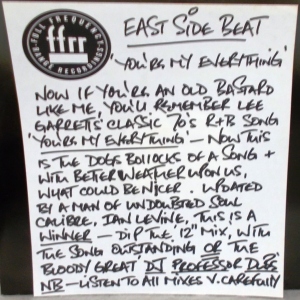 FULL FREQUENCY RANGE RECORDINGS
ffrr
EAST SIDE BEAT
'YOU'RE MY EVERYTHING'
NOW IF YOU'RE AN OLD BASTARD
LIKE ME, YOU'LL REMEMBER LEE
GARRETT'S CLASSIC 70'S R+B SONG
'YOU'RE MY EVERYTHING' - NOW THIS
IS THE DOGS BOLLOCKS OF A SONG +
WITH BETTER WEATHER UPON US,
WHAT COULD BE NICER. UPDATED
BY A MAN OF UNDOUBTED SOUL
CALIBRE, IAN LEVINE, THIS IS A
WINNER - DIP THE 12" MIX, WITH
THE SONG OUTSTANDING OR THE
BLOODY GREAT DJ PROFESSOR DUBS
NB - LISTEN TO ALL MIXES V. CAREFULLY